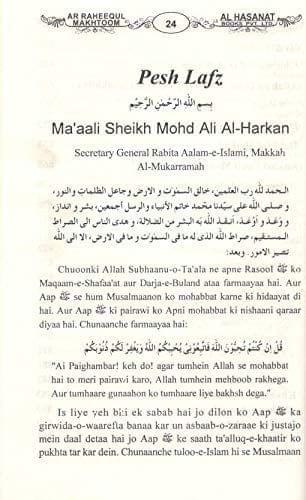 AR RAHEEQUL
MAKHTOOM
24
AL HASANAT
BOOKS PVT. LTD.
Pesh Lafz
بِسْمِ اللّٰهِ الرَّحْمٰنِ الرَّحِيْمِ
Ma'aali Sheikh Mohd Ali Al-Harkan
Secretary General Rabita Aalam-e-Islami, Makkah
Al-Mukarramah
الحمد لله رب العلمين، خالق السمٰوٰت و الارض وجاعل الظلمات والنور،
و صلى الله على سيدنا محمد خاتم الأنبياء والرسل أجمعين، بشر و انذار،
و وَعَدَ و أوْعَدَ، أنقذ الله به البشر من الضلالة، و هدى الناس الى الصراط
المستقيم، صراط الله الذى له ما فى السمٰوٰت و ما فى الارض، الا الى الله
تصير الامور. وبعد:
Chuoonki Allah Subhaanu-o-Ta'ala ne apne Rasool ﷺ ko
Maqaam-e-Shafaa'at aur Darja-e-Buland ataa farmaayaa hai. Aur
Aap ﷺ se hum Musalmaanon ko mohabbat karne ki hidaayat di
hai. Aur Aap ﷺ ki pairawi ko Apni mohabbat ki nishaani qaraar
diyaa hai. Chunaanche farmaayaa hai:
قُلْ اِنْ كُنْتُمْ تُحِبُّوْنَ اللّٰهَ فَاتَّبِعُوْنِىْ يُحْبِبْكُمُ اللّٰهُ وَيَغْفِرْ لَكُمْ ذُنُوْبَكُمْ
"Ai Paighambar! keh do! agar tumhein Allah se mohabbat
hai to meri pairawi karo, Allah tumhein mehboob rakhega.
Aur tumhaare gunaahon ko tumhaare liye bakhsh dega."
Is liye yeh bhi ek sabab hai jo dilon ko Aap ﷺ ka
girwida-o-waarefta banaa kar un asbaab-o-zaraae ki justajo
mein daal detaa hai jo Aap ﷺ ke saath ta'alluq-e-khaatir ko
pukhta tar kar dein. Chunaanche tuloo-e-Islam hi se Musalmaan